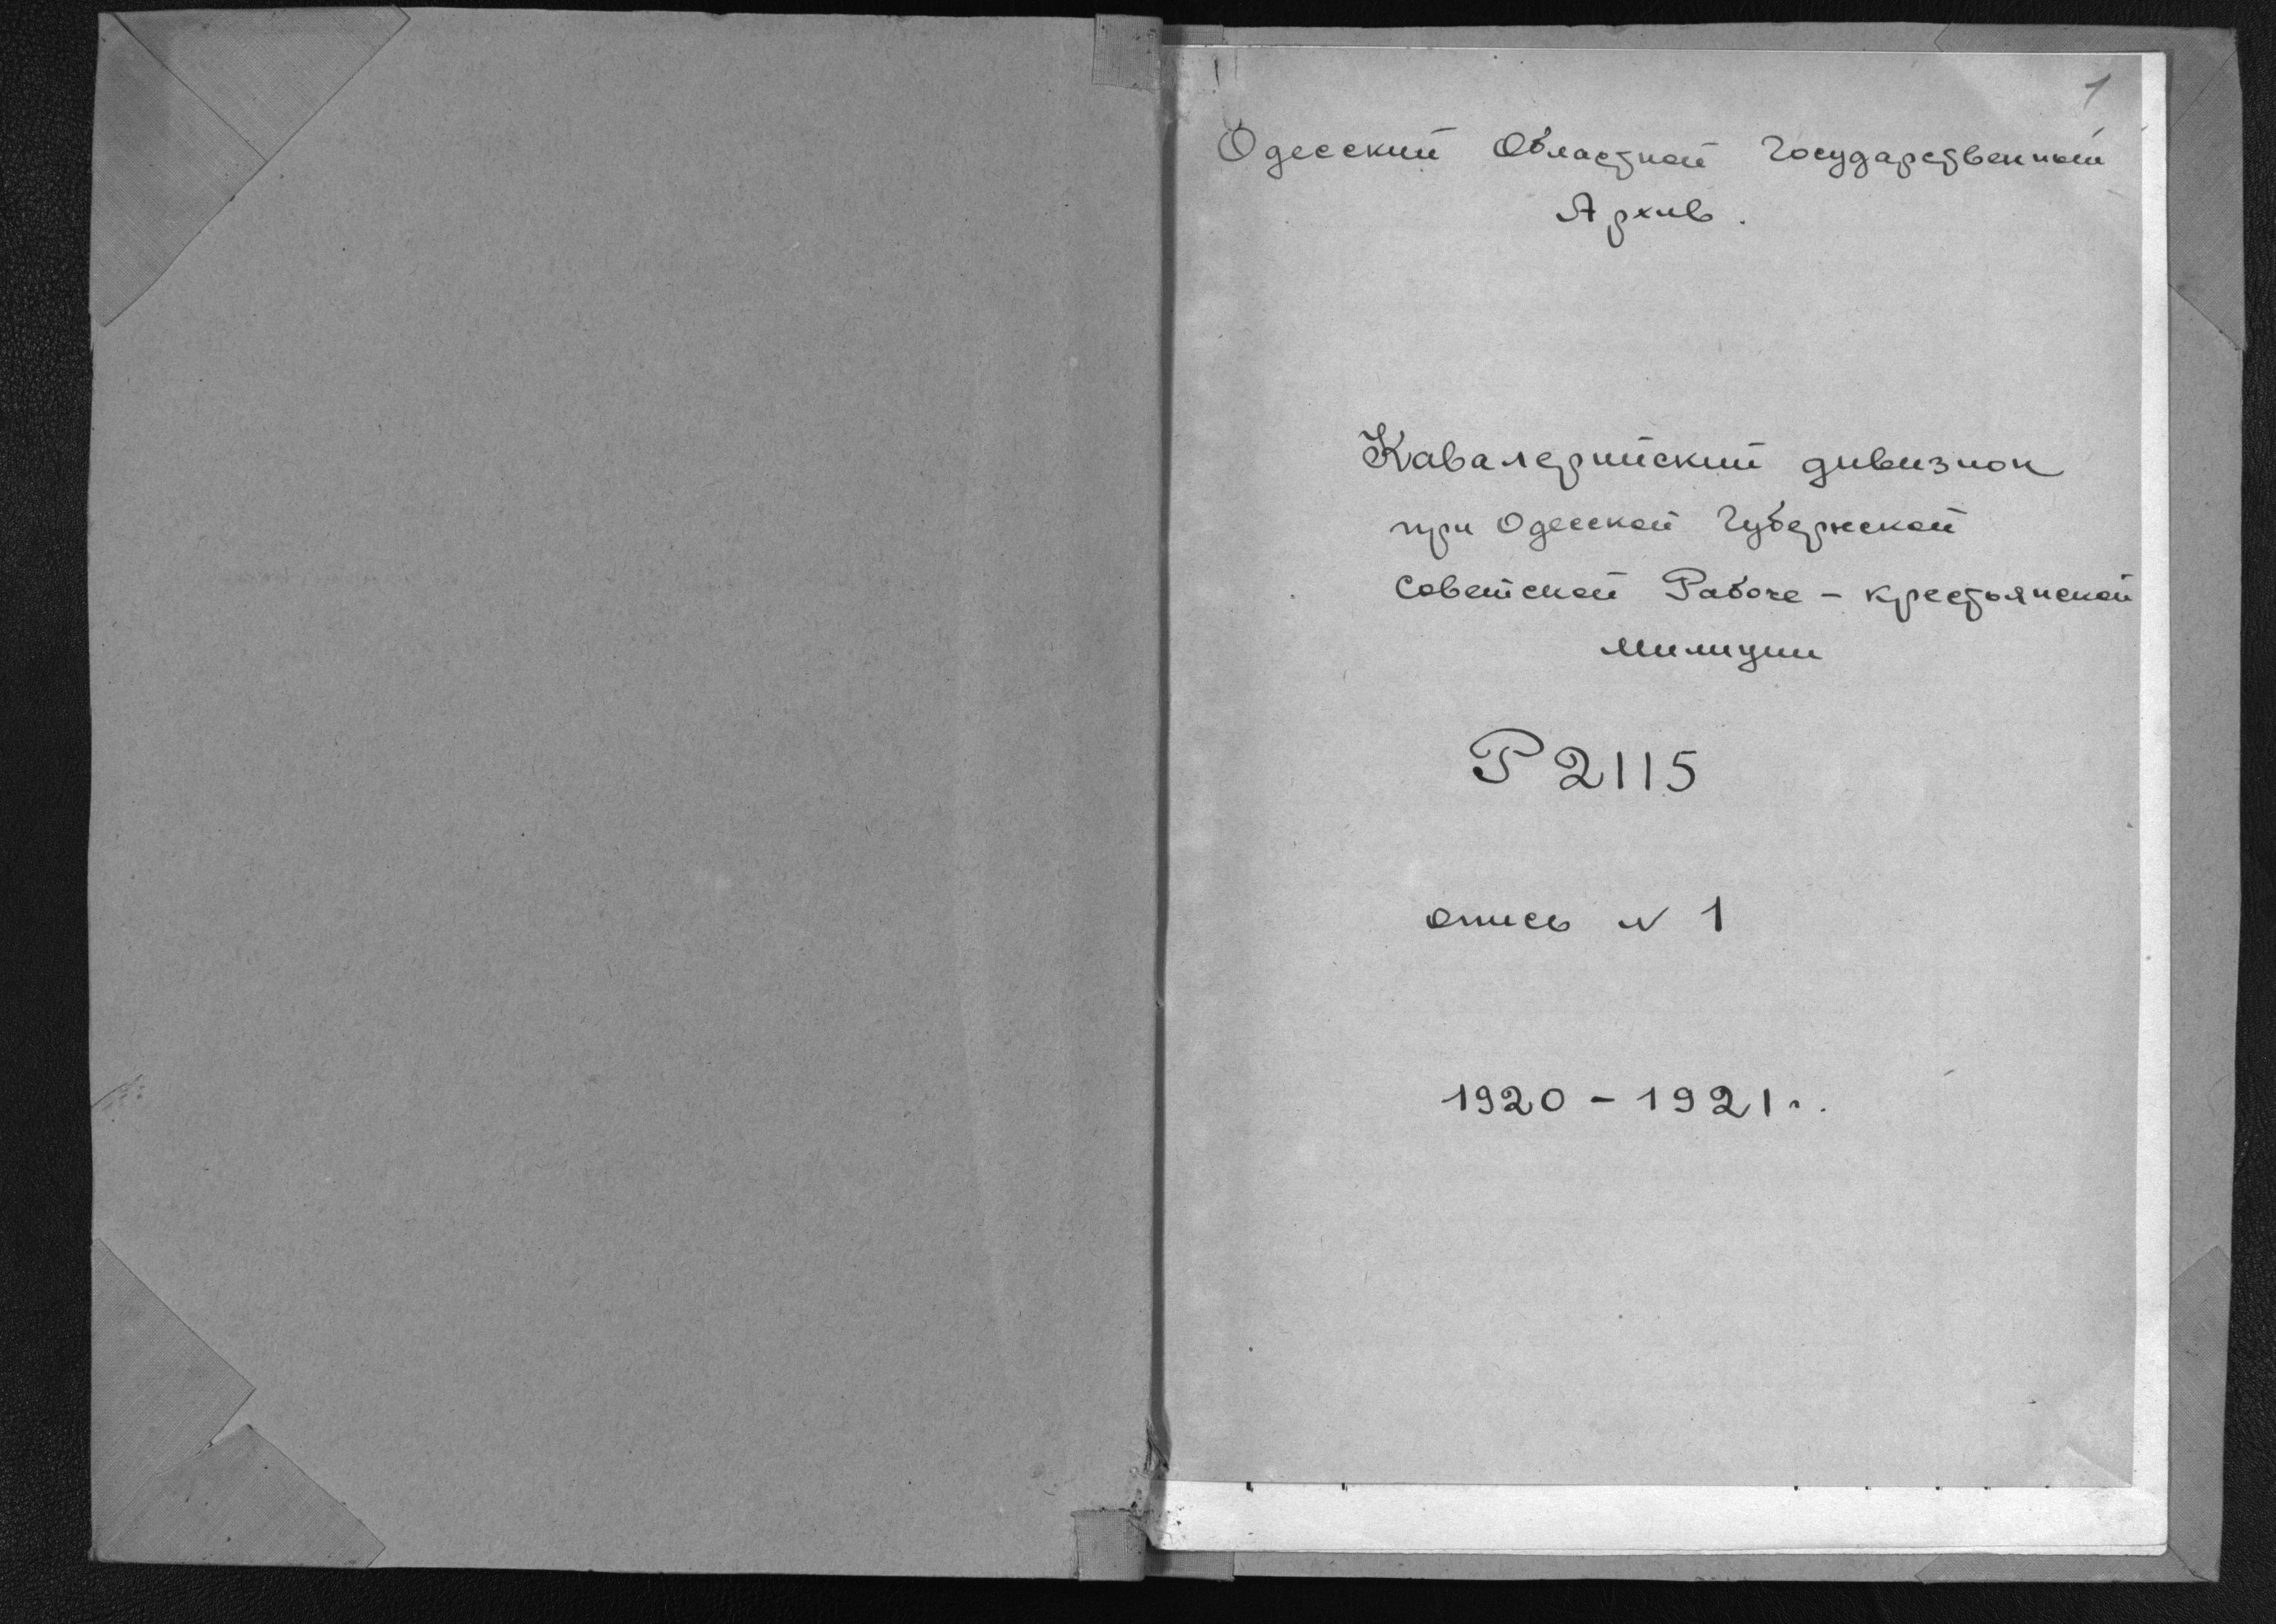 1
Одесский Областной Государственный
Архив.
Кавалерийский дивизион
при Одесской Губернской
Советской Рабоче - крестьянской
милиции
Р 2115
опись № 1
1920 - 1921 г.